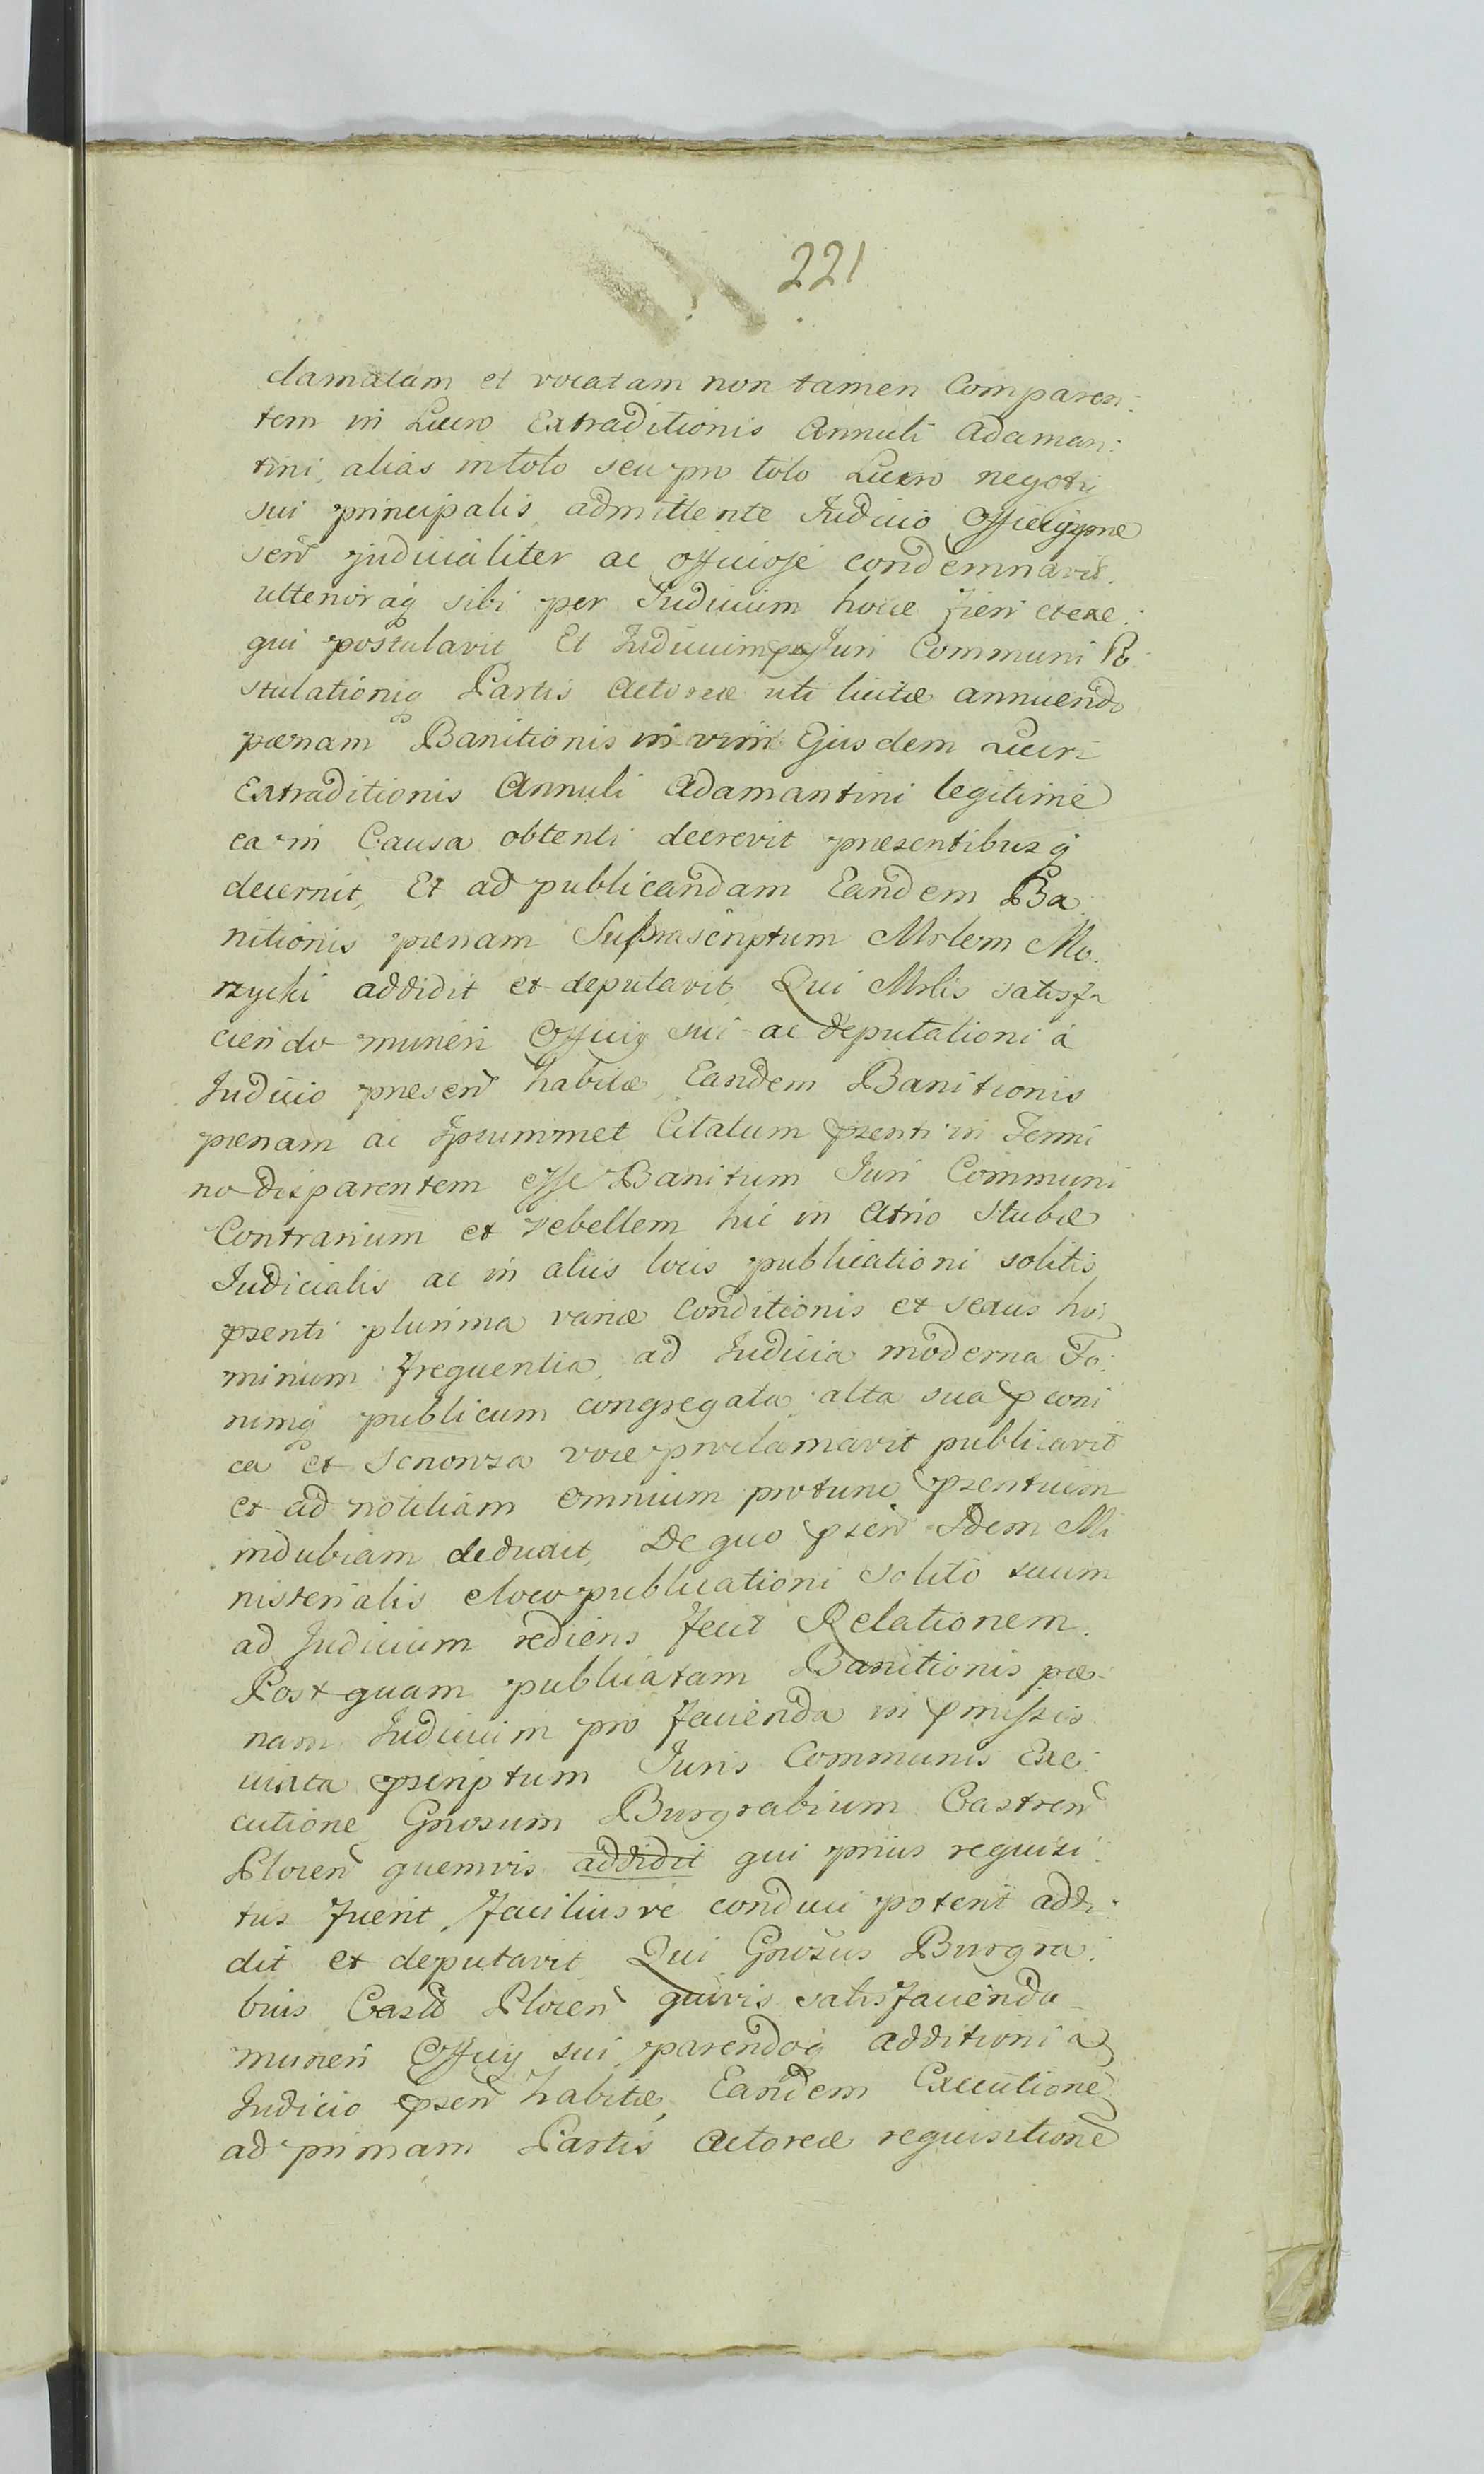 221
clamatam et vocatam non tamen Comparen:
tem in Lucro Extraditionis Annuli Adaman:
tini, alias in toto seu pro toto Lucro negotij
sui principalis admittente Iudicio Officijq prae
sen̄ judicialiter ac officiose condemnavit.
ulterioraq sibi per Iudicium hocce fieri et exe:
qui postulavit Et Iudicium Juri Communi Po:
stulationiq Partis Actoreæ uti licitæ annuendo
pœnam Banitionis in vim Ejusdem Lucri
Extraditionis Annuli Adamantini legitime
ea in Causa obtenti decrevit præsentibusq
decernit, Et ad publicandam Eandem Ba
nitionis pœnam Suprascriptum Mrlem Mo:
rzycki addidit et deputavit Qui Mrlis satisfa
ciendo muneri Officij sui ac deputationi à
Iudicio præsen̄ habitæ Eandem Banitionis
pœnam ac Ipsummet Citatum pzenti in Termi
no disparentem esse Banitum Juri Communi
Contrarium et rebellem hic in Atrio Stubæ
Iudicialis ac in aliis locis publicationi solitis
pzenti plurima variæ conditionis et sexus ho:
minum frequentia, ad Iudicia moderna Fo:
rumq publicum congregata, alta sua p coni
ca et sononza voce proclamavit publicavit
et ad notitiam omnium protunc pzentium
indubiam deduxit, De quo pzen̄ Idem Mi
nisterialis e loco publicationi solito suum
ad Judicium rediens fecit Relationem.
Post quam publicatam Banitionis pœ:
nam Iudicium pro facienda in pmissis
iuxta pscriptum Juris Communis Exe:
cutione Gnosum Burgrabium Castren̄
Plocen̄ quemvis addidit qui prius requisi:
tus fuerit, faciliusve conduci poterit addi:
dit et deputavit Qui Gnosus Burgra:
bius Cast Plocen̄ quivis satisfaciendo
muneri Officij sui parendoq additioni à
Iudicio pzen̄ habitæ, Eandem Executione
ad primam Partis Actoreæ requisitione